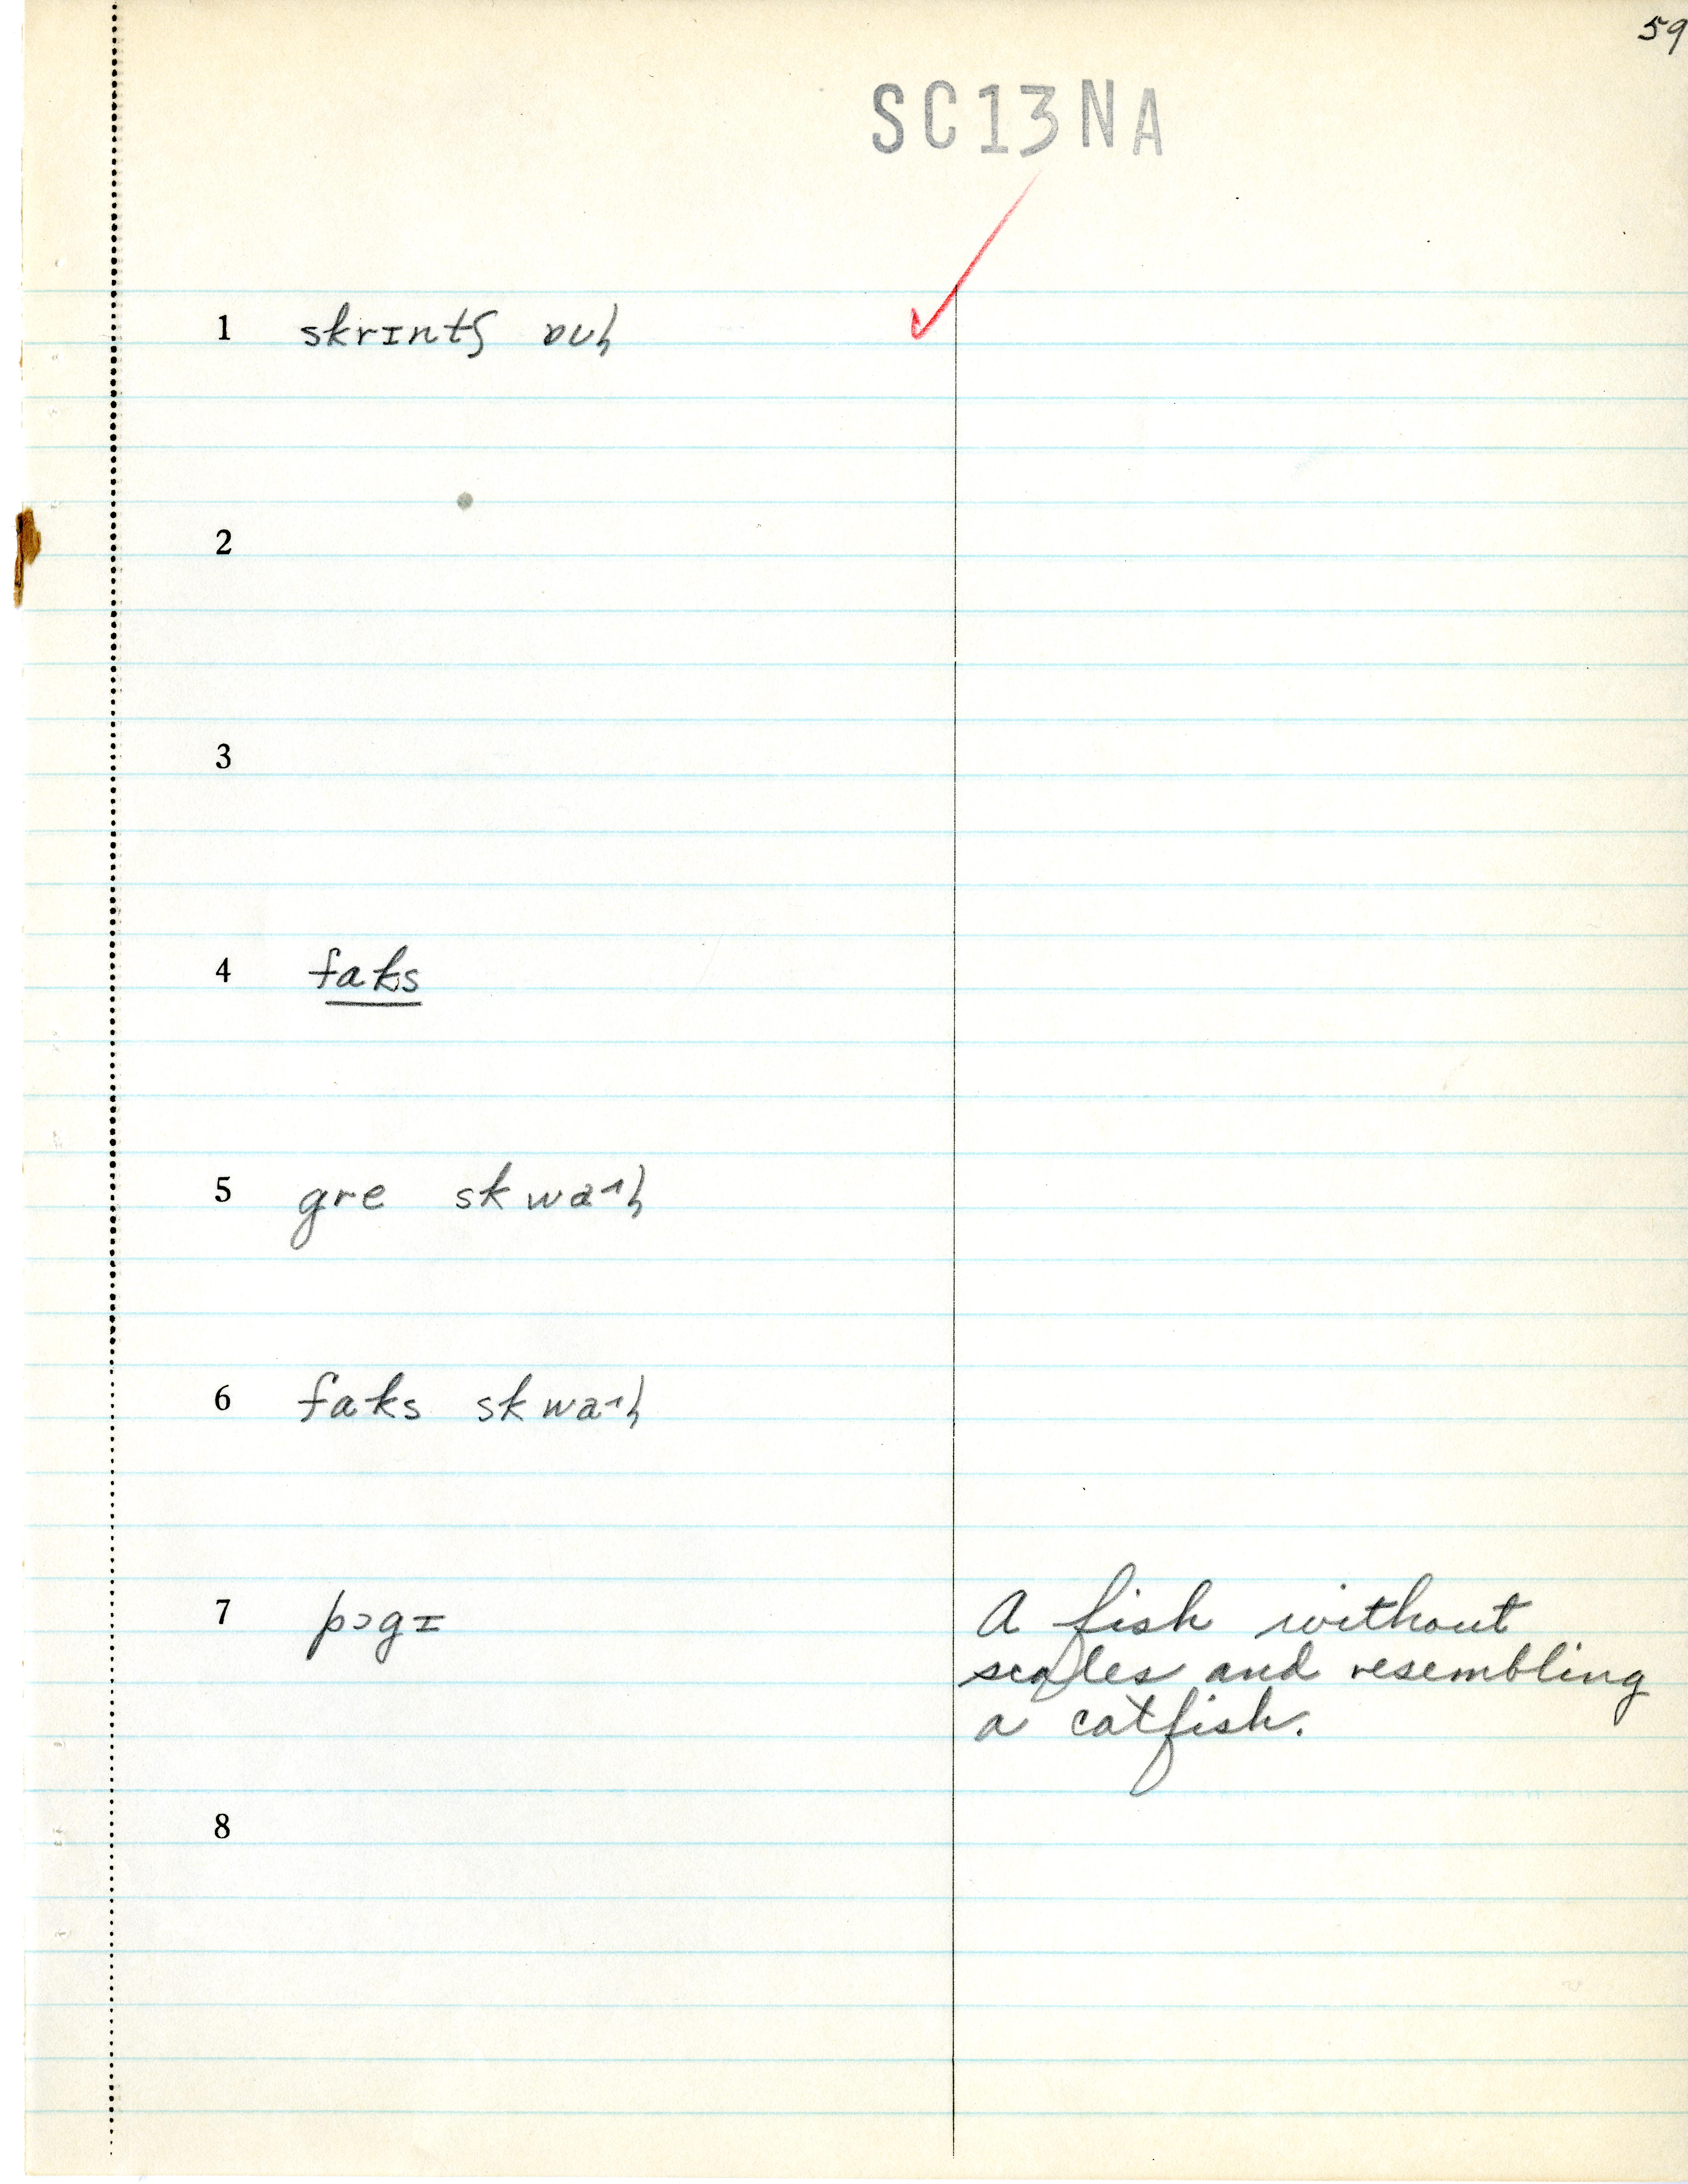 59
SC13NA
1 skrɪntʃ ɒʋɫ
2
3
4 faks
5 gre skwaɹɫ
6 faks skwaɹɫ
7 pɔgɪ A fish without
scales and resembling
a catfish.
8